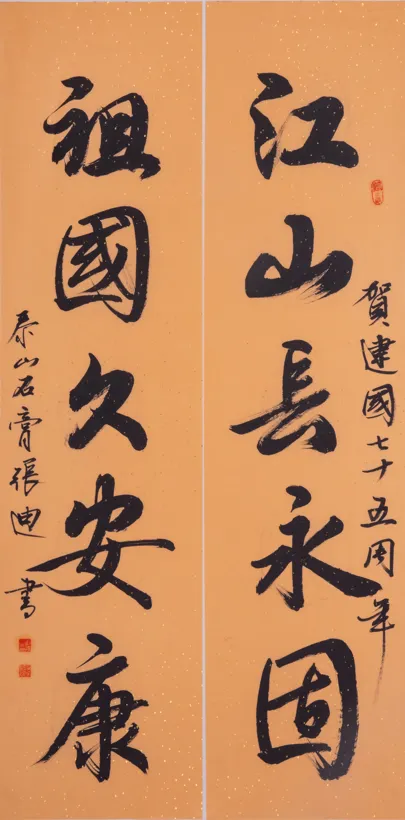 賀建國七十五周年
江山長永固
祖國久安康
泰山石膏張迪書